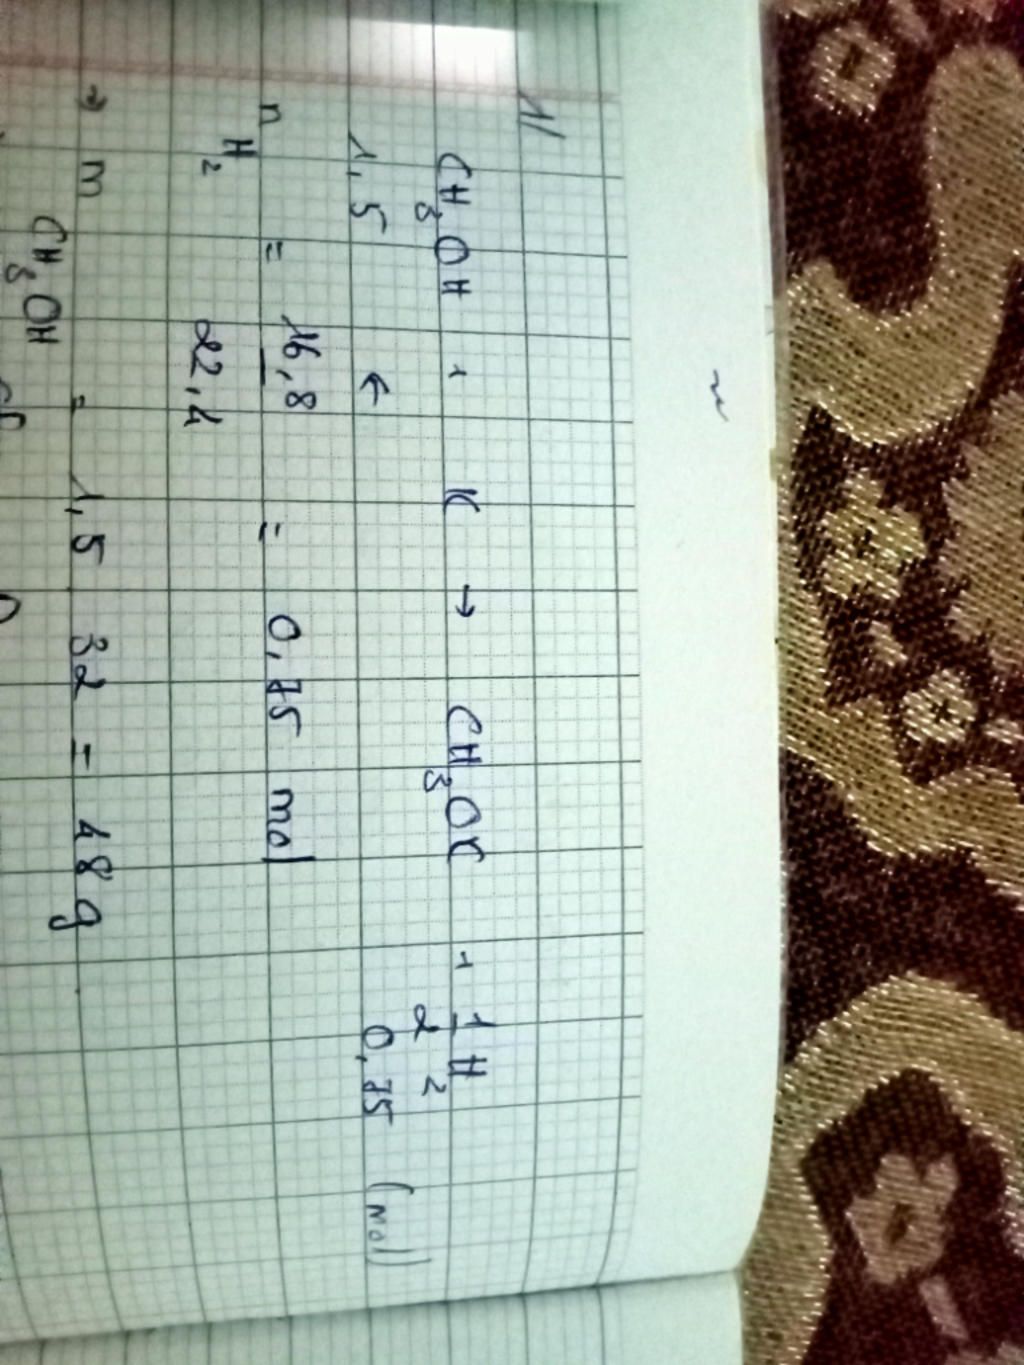 1/
CH3OH + K → CH3OK + 1/2 H2
1,5 ← 0,75 (mol)
nH2 = 16,8/22,4 = 0,75 mol
→ mCH3OH = 1,5 . 32 = 48 g